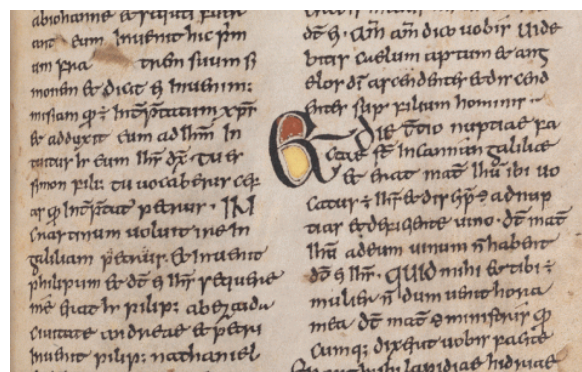 abiohanne & secuti fuerant
ant eum Inuenit hic pm
um fra trem suum s
monem & dicit ei Inuenimus
messiam qd ÷ Int̄p̄tatum xp̄r
& adduxit eum ad ihm In
tuitus h eum ihs dx̄ tu es
simon filius tu uocaberis cep
as qd Int̄p̄tat petrus · IN
Crastinum uoluit ire In
galileam petrus · & Inuenit
philipum & dt̄ ei ihs sequere
me erat h pilip; abezaida
ciuitate andreae & petri
Inuenit pilip; nathaniel
dt̄ ei · am̄ am̄ dico uobis uide
bitis caelum apertum & ang
elos dī ascendentes & discend
entes sup filium hominis
Et die t̄tio nuptiae fa
ctae st̄ In cannan galileae
& erat mat̄ ihu ibi uo
catur ÷ ihs & discip̄ ei ad nup
tias & deficiente uino · dt̄ mat̄
ihu ad eum uinum n̄ habent
dt̄ ei ihs · quid mihi & tibi ÷
mulier n̄ dum uenit hora
mea dt̄ mat̄ ei ministris qd
cumq; dixerit uobis facite
lapidiae hidriae